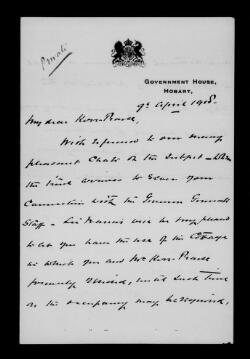 Private
GOVERNMENT HOUSE,
HOBART.
9th April 1918.
My dear Kerr-Pearse,
With reference to our many
pleasant chats on the subject – when
the time arrives to sever your
connection with the Governor General's
Staff – Sir Francis will be very pleased
to let you have the use of the Cottage
in which you and Mrs Kerr-Pearse
formerly resided, until such time
as the occupancy may be required,